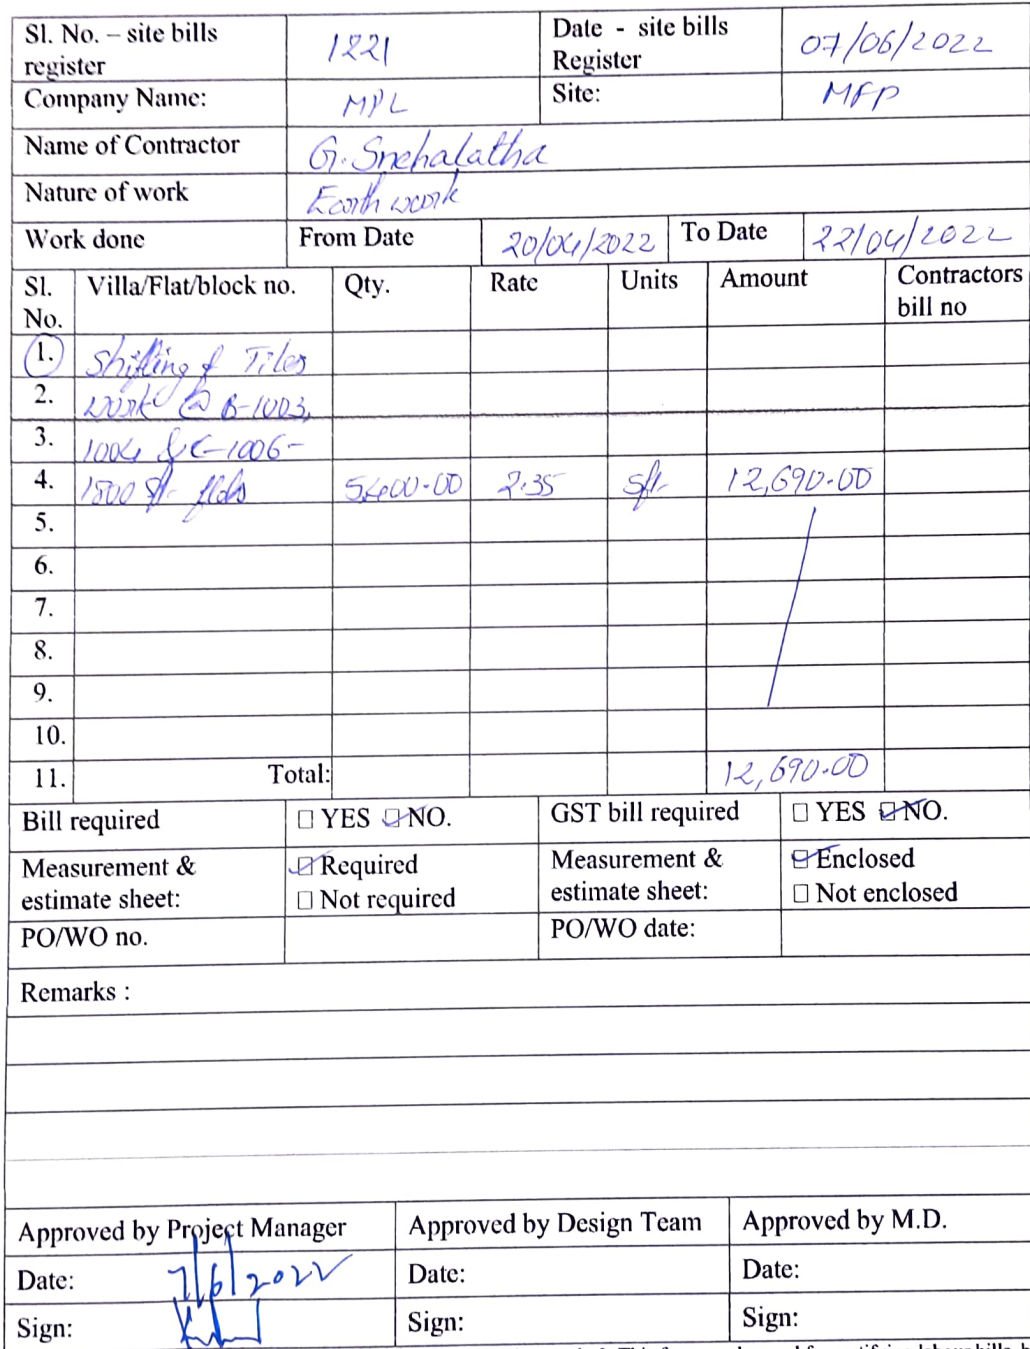 Sl. No. – site bills register 1221 Date - site bills Register 07/06/2022
Company Name: MPL Site: MFP
Name of Contractor G. Snehalatha
Nature of work Earth work
Work done From Date 20/04/2022 To Date 22/04/2022
Sl. No. Villa/Flat/block no. Qty. Rate Units Amount Contractors bill no
1. Shifting of Tiles
2. work @ B-1003,
3. 1004 & C-1006-
4. 1800 sft 5400-00 2.35 sft. 12,690-00
5.
6.
7.
8.
9.
10.
11. Total: 12,690-00
Bill required □ YES □ NO. GST bill required □ YES □ NO.
Measurement & estimate sheet: □ Required Measurement & estimate sheet: □ Enclosed
□ Not required □ Not enclosed
PO/WO no. PO/WO date:
Remarks :
Approved by Project Manager Approved by Design Team Approved by M.D.
Date: 7/6/2022 Date: Date:
Sign: Sign: Sign: